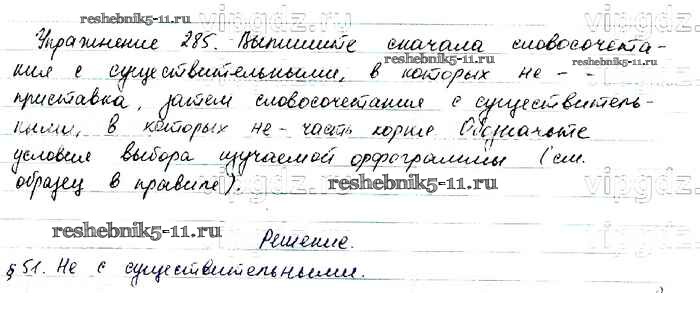 reshebnik5-11.ru
vipgdz.ru
Упражнение 285. Выпишите сначала словосочета-
ния с существительными, в которых не - -
reshebnik5-11.ru
приставка, затем словосочетания с существитель-
ными, в которых не - часть корня. Обозначьте
условия выбора изучаемой орфограммы (см.
образец в правиле).
reshebnik5-11.ru
vipgdz.ru
reshebnik5-11.ru
Решение.
§ 51. Не с существительными.